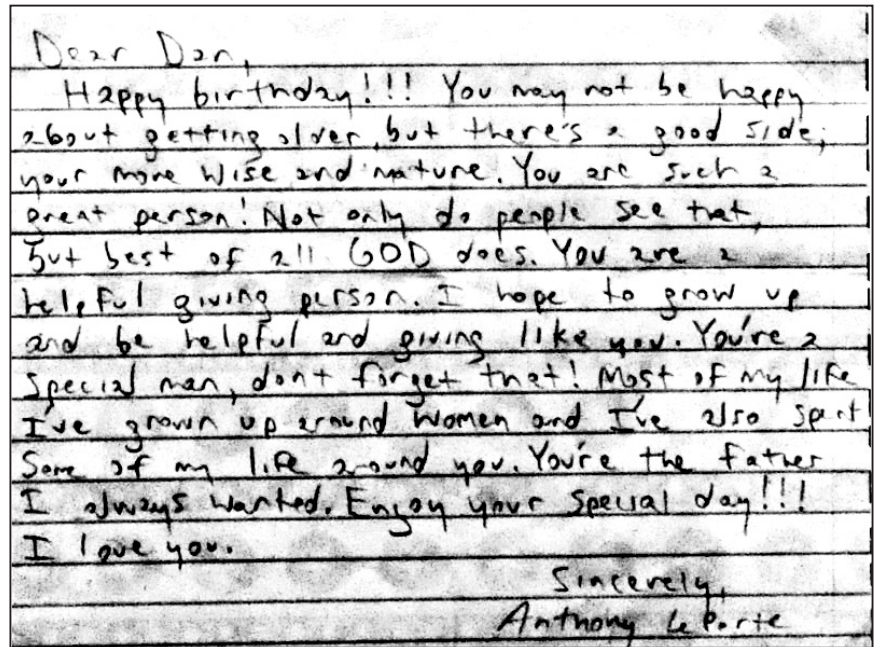 Dear Dan,
Happy birthday!!! You may not be happy
about getting older, but there's a good side,
your more wise and mature. You are such a
great person! Not only do people see that,
but best of all GOD does. You are a
helpful giving person. I hope to grow up
and be helpful and giving like you. You're a
special man, don't forget that! Most of my life
I've grown up around women and I've also spent
some of my life around you. You're the father
I always wanted. Enjoy your special day!!!
I love you.
Sincerely,
Anthony LePorte